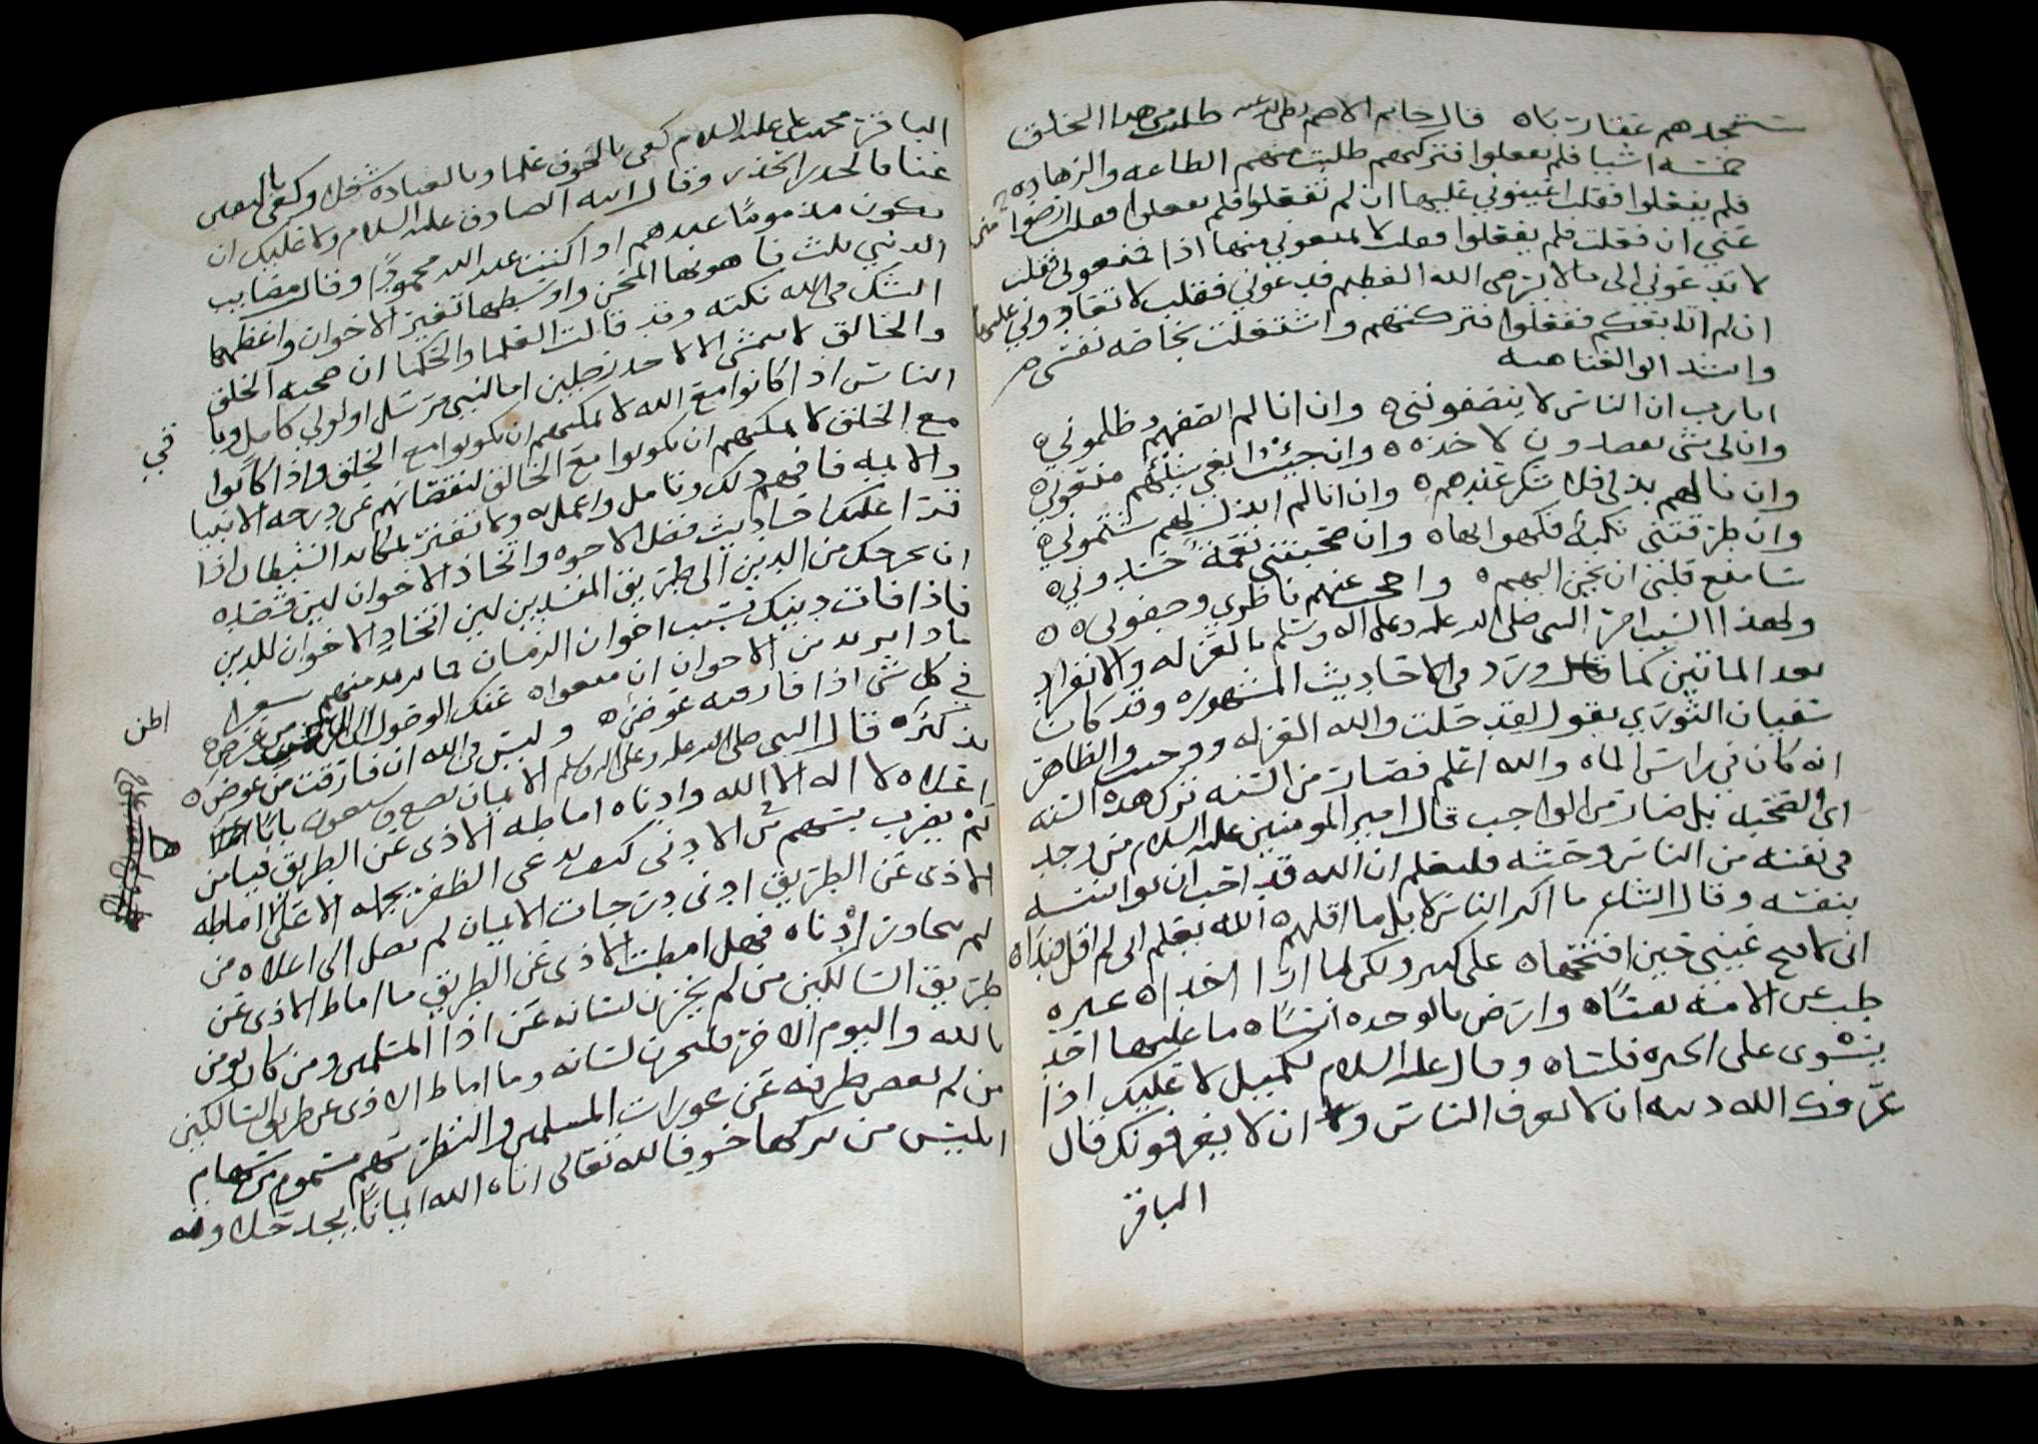 ستجدهم عقاربا قال حاتم الاصم رضي الله عنه طلبت من هذا الخلق
خمسه اشيا فلم يفعلوا فتركتهم طلبت منهم الطاعه والزهاده
فلم يفعلوا فقلت اعينوني عليها ان لم تفعلوا فلم يفعلوا فقلت ارضوا
عني ان فعلت فلم يفعلوا فقلت لا تمنعوني منها اذا فمنعوني فقلت
لا تدعوني الى ما لا يرضى الله العظيم فدعوني فقلت لا تعادوني عليها
ان لم اتابعكم ففعلوا فتركتهم واشتغلت بخاصه نفسي
وانشد ابو العتاهيه
ايا رب ان الناس لا ينصفونني وان انا لم انصفهم ظلموني
وان لي شي تصدون لاخذه وان جيت ابغي سيبهم منعوني
وان نالهم بذلي فلا شكر عندهم وان انا لم ابذل لهم شتموني
وان طرقتني نكبه فكهوا بها وان صحبتني نعمه حسدوني
سامنع قلبي ان يحن اليهم واحجب عنهم ناظري وجفوني
ولهذا السبب امر النبي صلى الله عليه وعلى اله وسلم بالعزله والانفراد
بعد الماتين كما ورد في الاحاديث المشهوره وقد كان
سفيان الثوري يقول لقد حلت والله العزله ووجبت والظاهر
انه كان في راس الماه والله اعلم فصارت من السنه ترك هذه السنه
اي الصحبه بل صارت من الواجب قال امير المومنين عليه السلام من وجد
في نفسه من الناس وحشه فليعلم ان الله قد احب ان يوانسه
بنفسه وقال الشاعر ما اكثر الناس لا بل ما اقلهم الله يعلم اني لم اقل فندا
اني لافتح عيني حين افتحها على كثير ولكن لا ارا احدا
طب عن الامه نفسا وارض بالوحده انسا ما عليها احد
يسوى على الخبره فلسا وقال عليه السلام لكميل لا عليك اذا
عرفك الله دينه ان لا تعرف الناس ولا ان لا يعرفونك قال
الباقر
الباقر محمد بن علي عليه السلام كفى بالخوف علما وبالعباده شغلا وكفى باليقين
غنا فالحذر الحذر وقال ابنه الصادق عليه السلام ولا عليك ان
تكون مذموما عندهم اذا كنت عند الله محمودا وقال مصايب
الدنيا ثلث فاهونها المحن واوسطها تغير الاخوان واعظمها
الشك في الله نكته وقد قالت العلما والحكما ان صحبه الخلق
والخالق لا تمشي الا لاحد رجلين اما لنبي مرسل او لولي كامل
الناس اذا كانوا مع الله لا يمكنهم ان يكونوا مع الخلق واذا كانوا
مع الخلق لا يمكنهم ان يكونوا مع الخالق لنقصانهم عن درجه الانبيا
والاوليه فافهم ذلك وتامل واعمل ولا تغتر بمكايد الشيطان اذا
قرا عليك احاديث فضل الاخوه واتخاذ الاخوان لين قصده
ان يخرجك من الدين الى طريق المفسدين لين اتخاذ الاخوان للدين
فاذا فات دينك بسبب اخوان الزمان فما تريد منهم
ماذا تريد من الاخوان ان منعوا عنك الوصول الى من غرض
في كل شي اذا فارقته عوض وليس في الله ان فارقت من عوض
تذكره قال النبي صلى الله عليه وعلى اله وسلم الايمان بضع وسبعون بابا
اعلاه لا اله الا الله وادناه اماطه الاذى عن الطريق فيا من
لم يضرب بسهم من الادنى كيف يدعي الظفر بجمله الاعلى اماطه
الاذى عن الطريق ادنى درجات الايمان لم تصل الى اعلاه من
لم تجاوز ادناه فهل امطت الاذى عن الطريق ما اماط الاذى عن
طريق السالكين من لم يخزن لسانه عن اذا المسلمين ومن كان يومن
بالله واليوم الاخر فليخزن لسانه وما اماط الاذى عن طريق السالكين
من لم يغض طرفه عن عورات المسلمين والنظر سهم مسموم من سهام
ابليس من تركها خوفا لله تعالى اتاه الله ايمانا يجد حلاوته